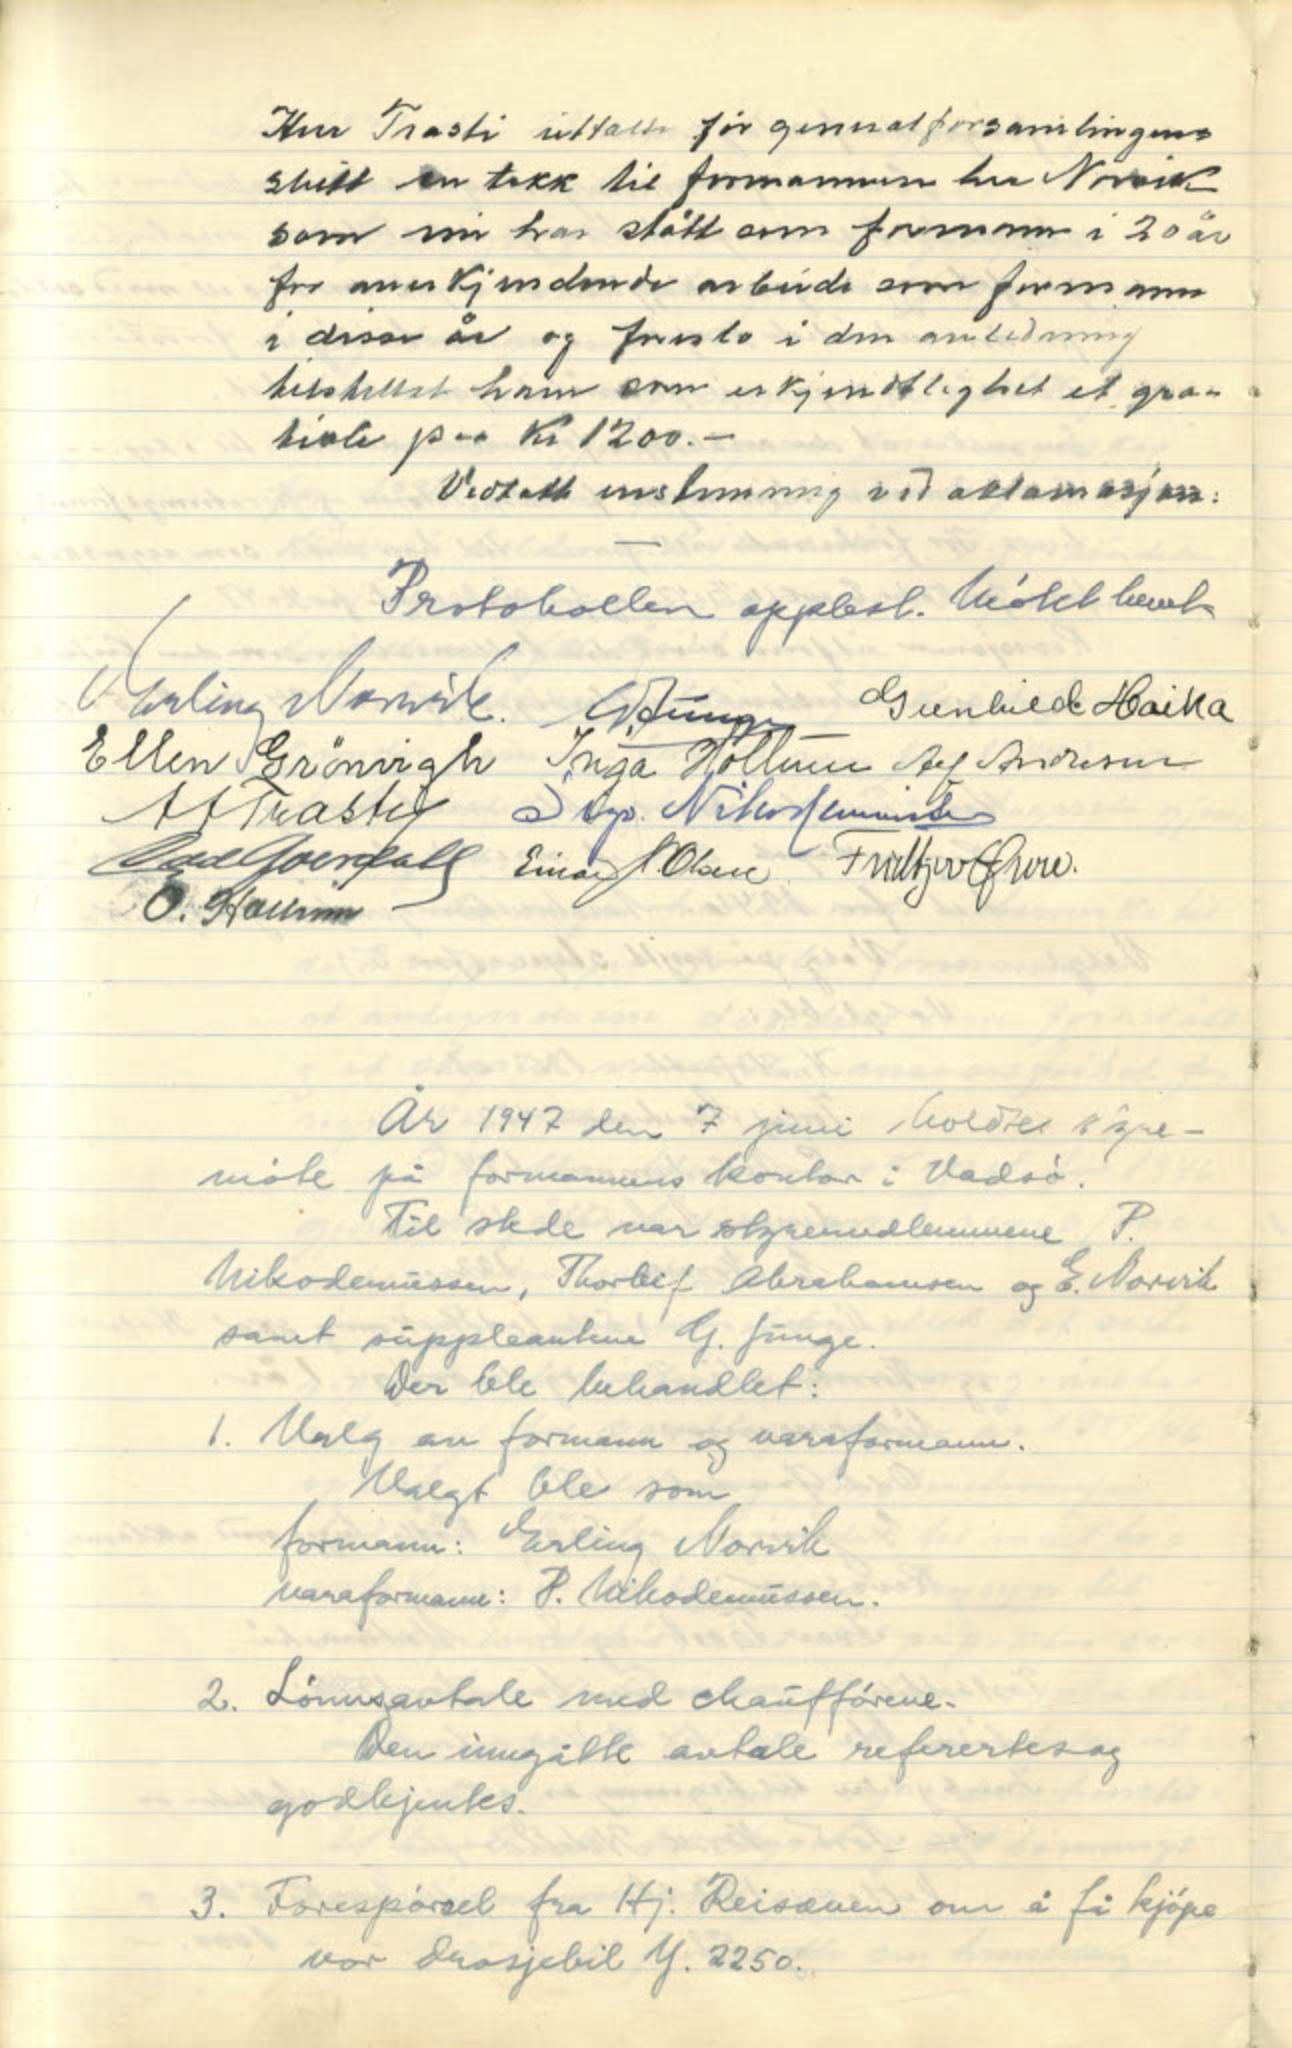 Herr Trasti uttalte før generalforsamlingens
slutt en takk til formannen herr Norvik
som nu har stått som formann i 20 år
for anerkjendende arbeide som formann
i disse år og foreslo i den anledning
tilstillet ham som erkjendtlighet et gra-
tiale paa Kr 1200.-
Vedtatt enstemmig ved aklamasjon:
Protokollen opplest. Møtet hevet.
Erling Norvik. G Junge Gunhild Haika
Ellen Grönvigh Inga Hollum Andersen
A A Trasti Nikodemussen
Einar Olsen Fridtjov Øwre.
O. Hallum
År 1947 den 7 juni holdtes styre-
møte på formannens kontor i Vadsø.
Til stede var styremedlemmene P.
Nikodemussen, Thorleif Abrahamsen og E. Norvik
samt suppleantene G. Junge.
Der ble behandlet:
1. Valg av formann og varaformann.
Valgt ble som
formann: Erling Norvik
varaformann: P. Nikodemussen.
2. Lønnsavtale med chaufførene.
Den inngåtte avtale refererles og
godkjentes.
3. Forespørsel fra Hj. Reisænen om å få kjøpe
vor drosjebil Y. 2250.